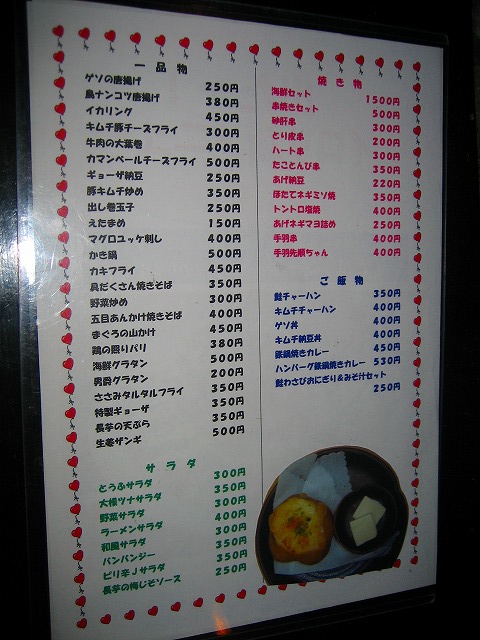 一品物
ゲソの唐揚げ 250円
鳥ナンコツ唐揚げ 380円
イカリング 450円
キムチ豚チーズフライ 300円
牛肉の大葉巻 400円
カマンベールチーズフライ 500円
ギョーザ納豆 250円
豚キムチ炒め 350円
出し巻玉子 250円
えだまめ 150円
マグロユッケ刺し 400円
かき鍋 500円
カキフライ 450円
具だくさん焼きそば 350円
野菜炒め 300円
五目あんかけ焼きそば 400円
まぐろの山かけ 450円
鶏の照りパリ 380円
海鮮グラタン 500円
男爵グラタン 200円
ささみタルタルフライ 350円
特製ギョーザ 350円
長芋の天ぷら 350円
生姜ザンギ 500円
サラダ
とうふサラダ 300円
大根ツナサラダ 350円
野菜サラダ 300円
ラーメンサラダ 400円
和風サラダ 300円
バンバンジー 350円
ピリ辛Jサラダ 350円
長芋の梅じそソース 250円
焼き物
海鮮セット 1500円
串焼きセット 500円
砂肝串 300円
とり皮串 200円
ハート串 300円
たことんび串 350円
あげ納豆 220円
ほたてネギミソ焼 350円
トントロ塩焼 400円
あげネギマヨ詰め 250円
手羽串 400円
手羽先順ちゃん 400円
ご飯物
鮭チャーハン 350円
キムチチャーハン 400円
ゲソ丼 400円
キムチ納豆丼 400円
鉄鍋焼きカレー 450円
ハンバーグ鉄鍋焼きカレー 530円
鮭わさびおにぎり&みそ汁セット
250円